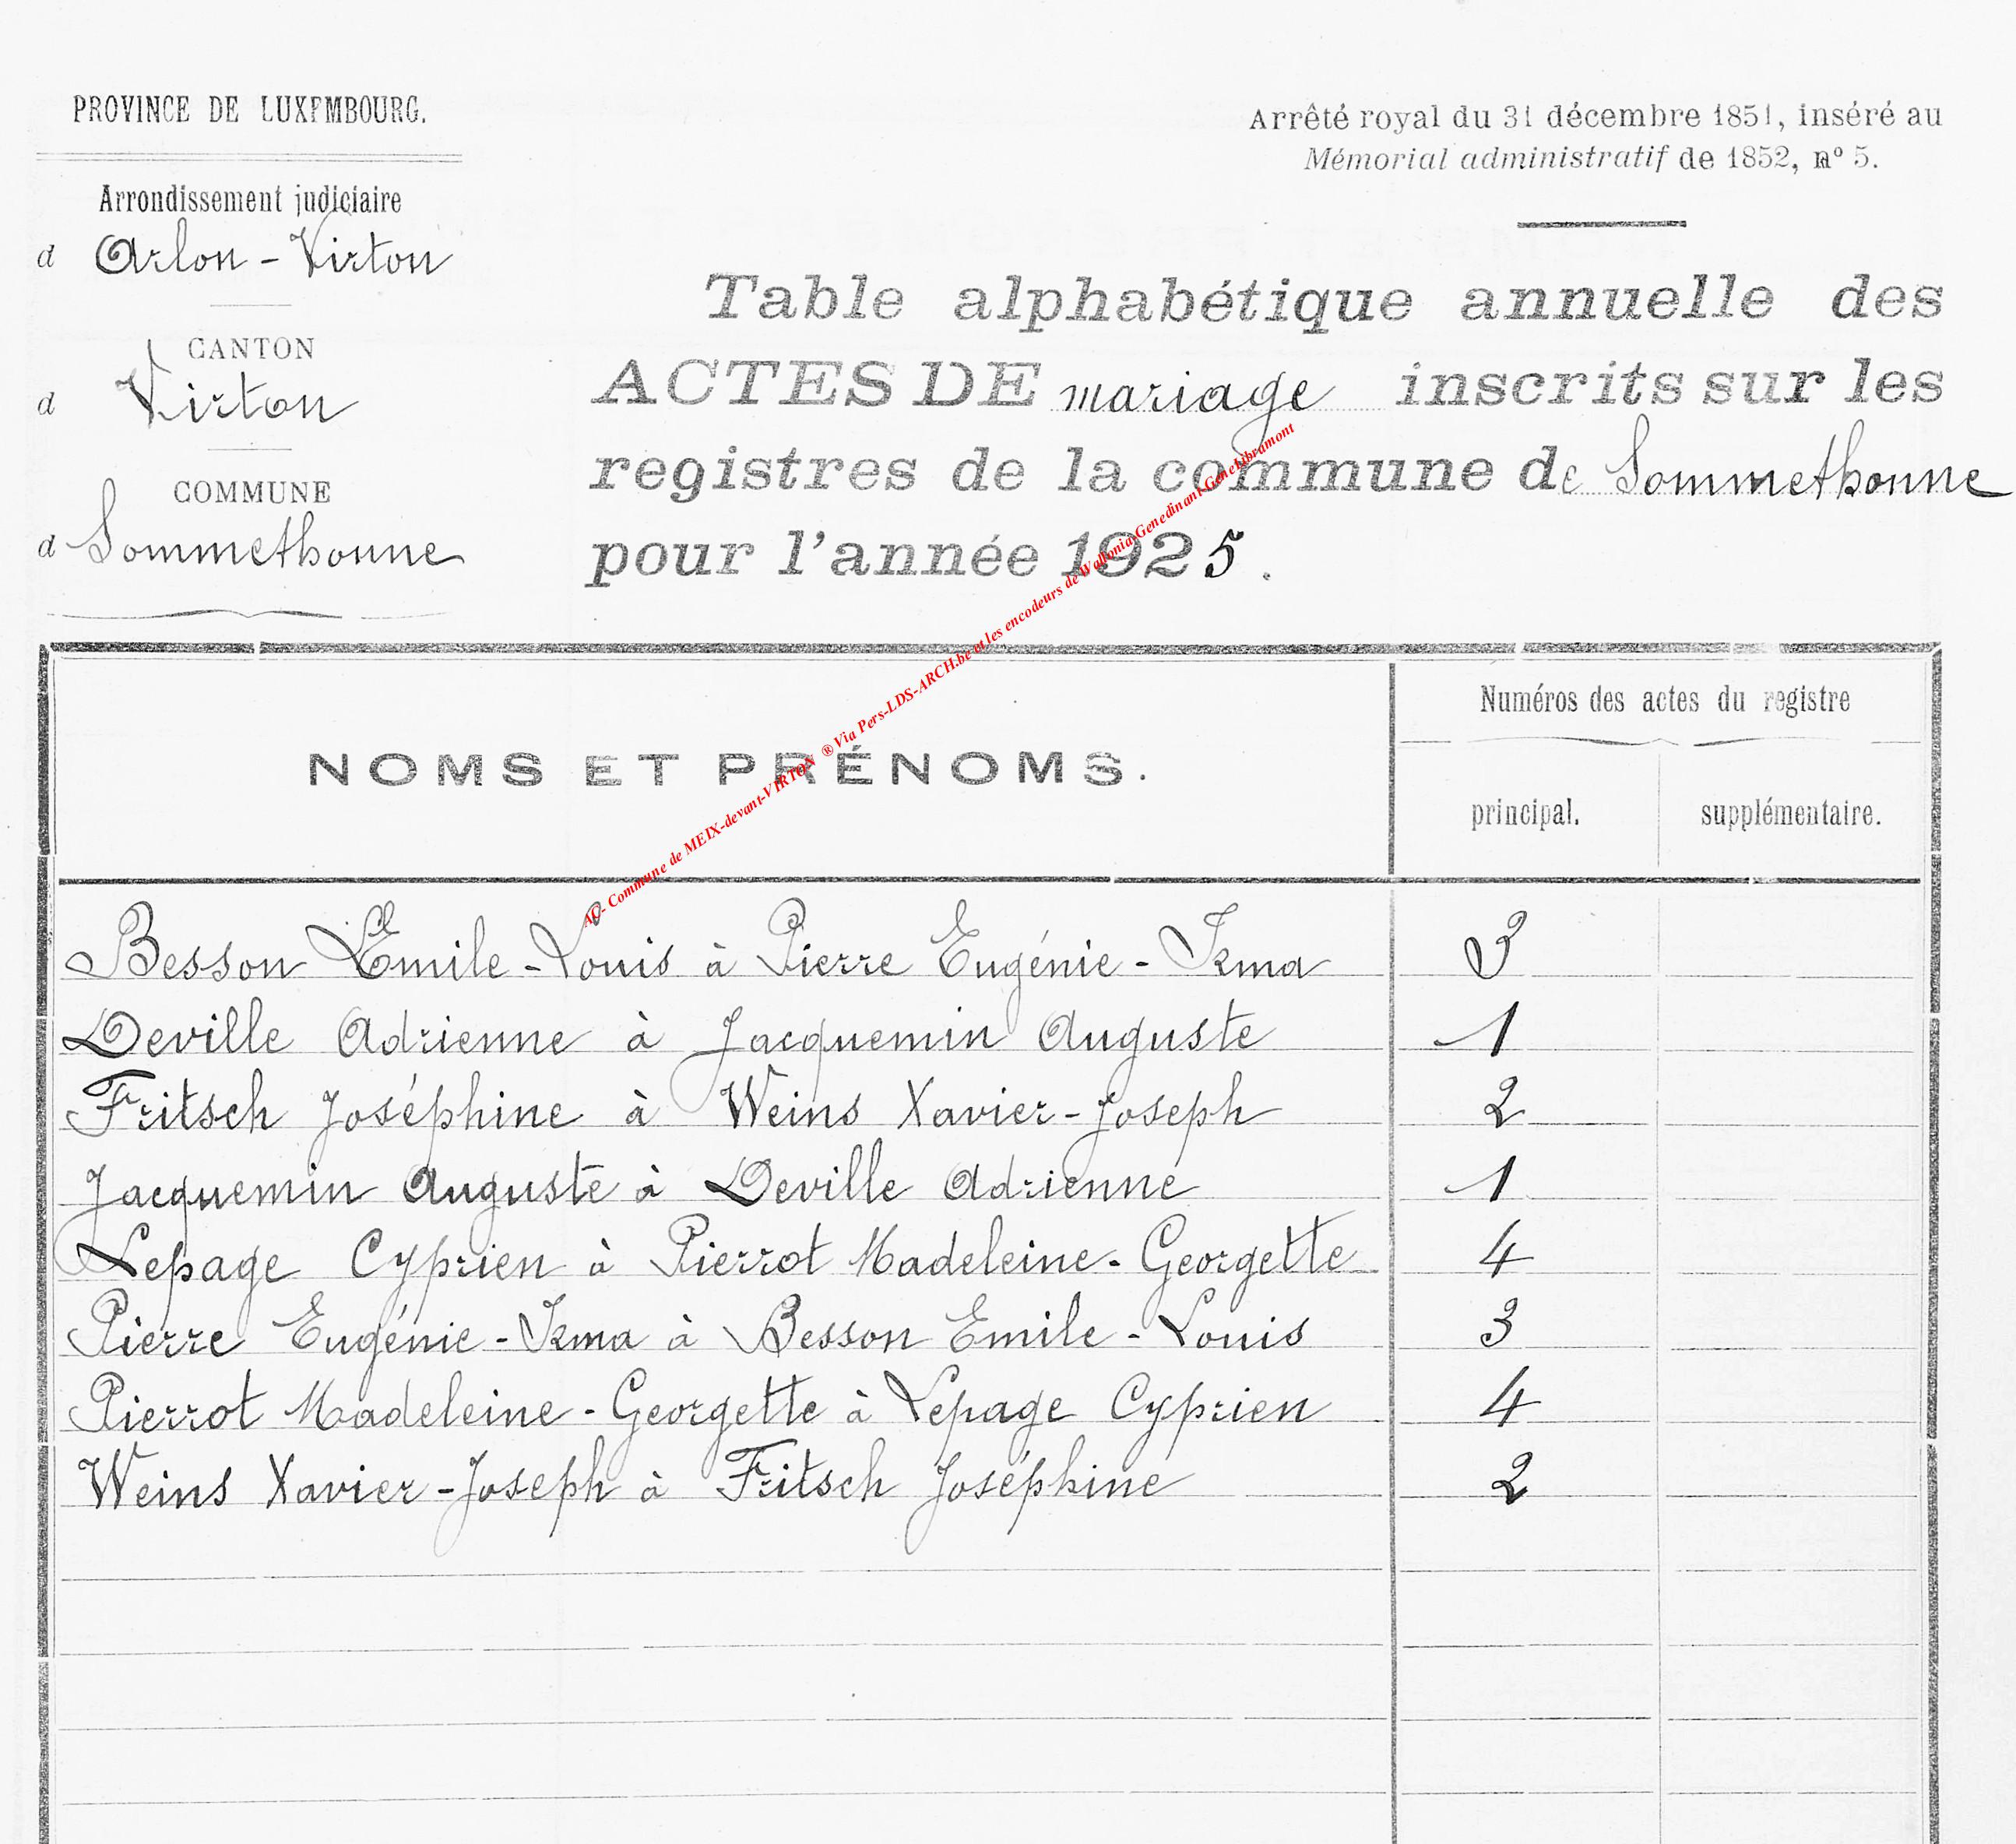 PROVINCE DE LUXEMBOURG.
Arrondissement judiciaire
d Arlon - Virton
CANTON
d Virton
COMMUNE
d Sommethonne
Arrêté royal du 31 décembre 1851, inséré au
Mémorial administratif de 1852, nº 5.
Table alphabétique annuelle des
ACTES DE mariage inscrits sur les
registres de la commune de Sommethonne
pour l'année 1925.
AC- Commune de MEIX-devant-VIRTON ® Via Pers-LDS-ARCH.be et les encodeurs de Wallonia-Genedinant-GeneLibramont
NOMS ET PRÉNOMS.
Numéros des actes du registre
principal. supplémentaire.
Besson Emile-Louis à Pierre Eugénie-Irma 3
Deville Adrienne à Jacquemin Auguste 1
Fritsch Joséphine à Weins Xavier-Joseph 2
Jacquemin Auguste à Deville Adrienne 1
Lepage Cyprien à Pierrot Madeleine-Georgette 4
Pierre Eugénie-Irma à Besson Emile-Louis 3
Pierrot Madeleine-Georgette à Lepage Cyprien 4
Weins Xavier-Joseph à Fritsch Joséphine 2